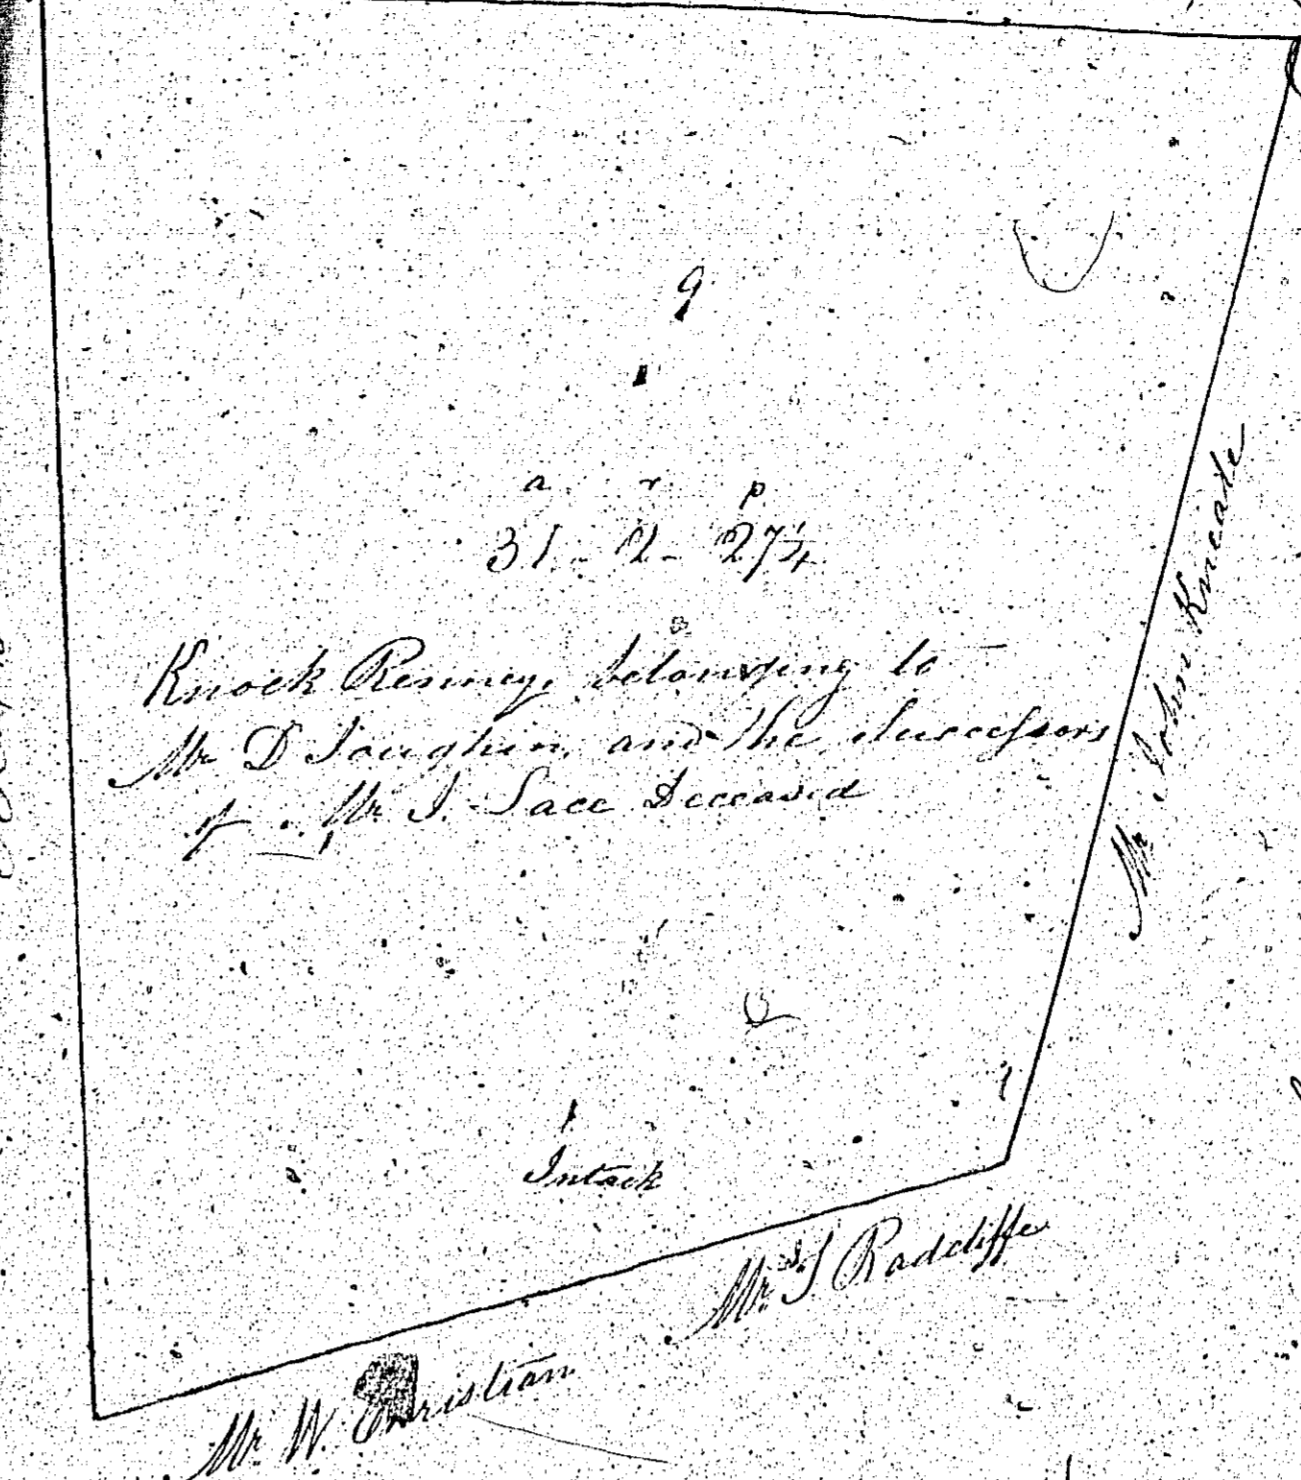 9
a r p
31 - 2 - 27¼
Knock Renney, belonging to
Mr D Joughin, and the Successors
of Mr J. Lace Deceased
Mr John Kneale
Intack
Mr J. Radcliffe
Mr W. Christian